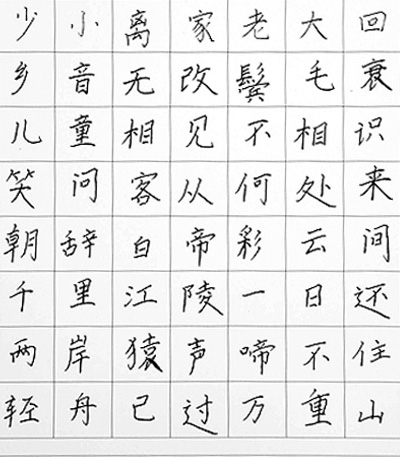 少小离家老大回
乡音无改鬓毛衰
儿童相见不相识
笑问客从何处来
朝辞白帝彩云间
千里江陵一日还
两岸猿声啼不住
轻舟已过万重山